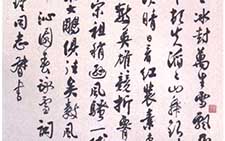 冰封萬里雪飄
頓失滔滔山舞
須晴日看紅裝素
數英雄競折腰
宗祖稍遜風騷一代
大鵰俱往矣數風
沁園春詠雪詞
同志
書